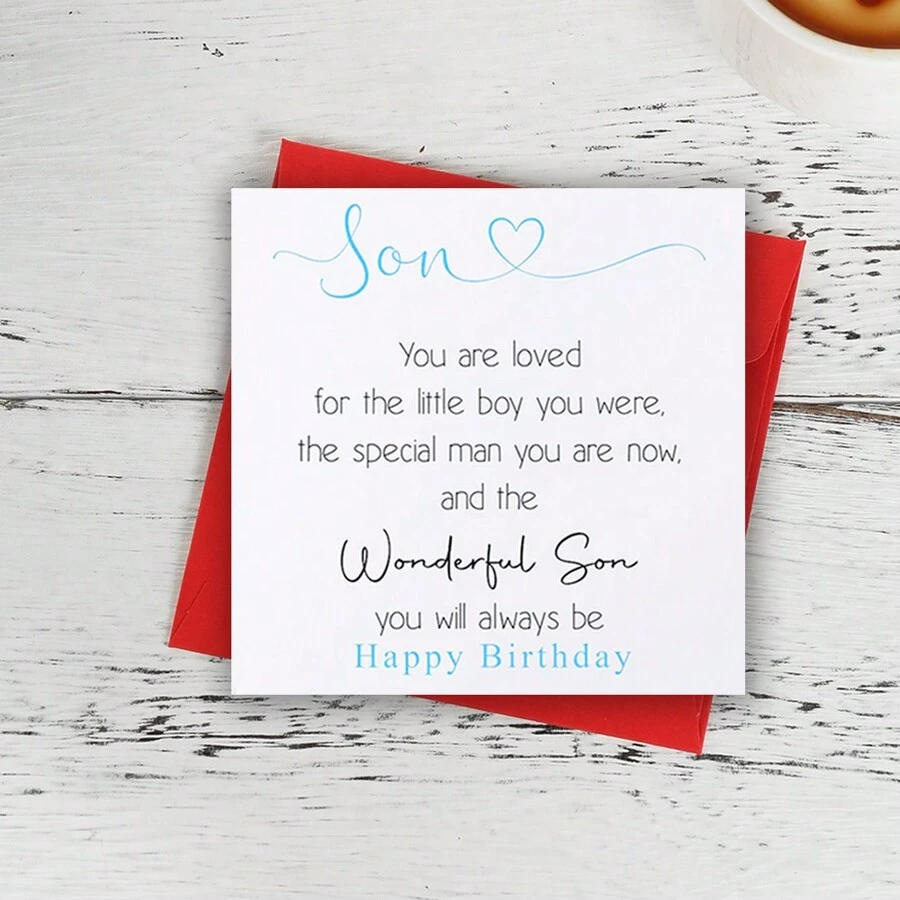 Son
You are loved
for the little boy you were,
the special man you are now,
and the
Wonderful Son
you will always be
Happy Birthday